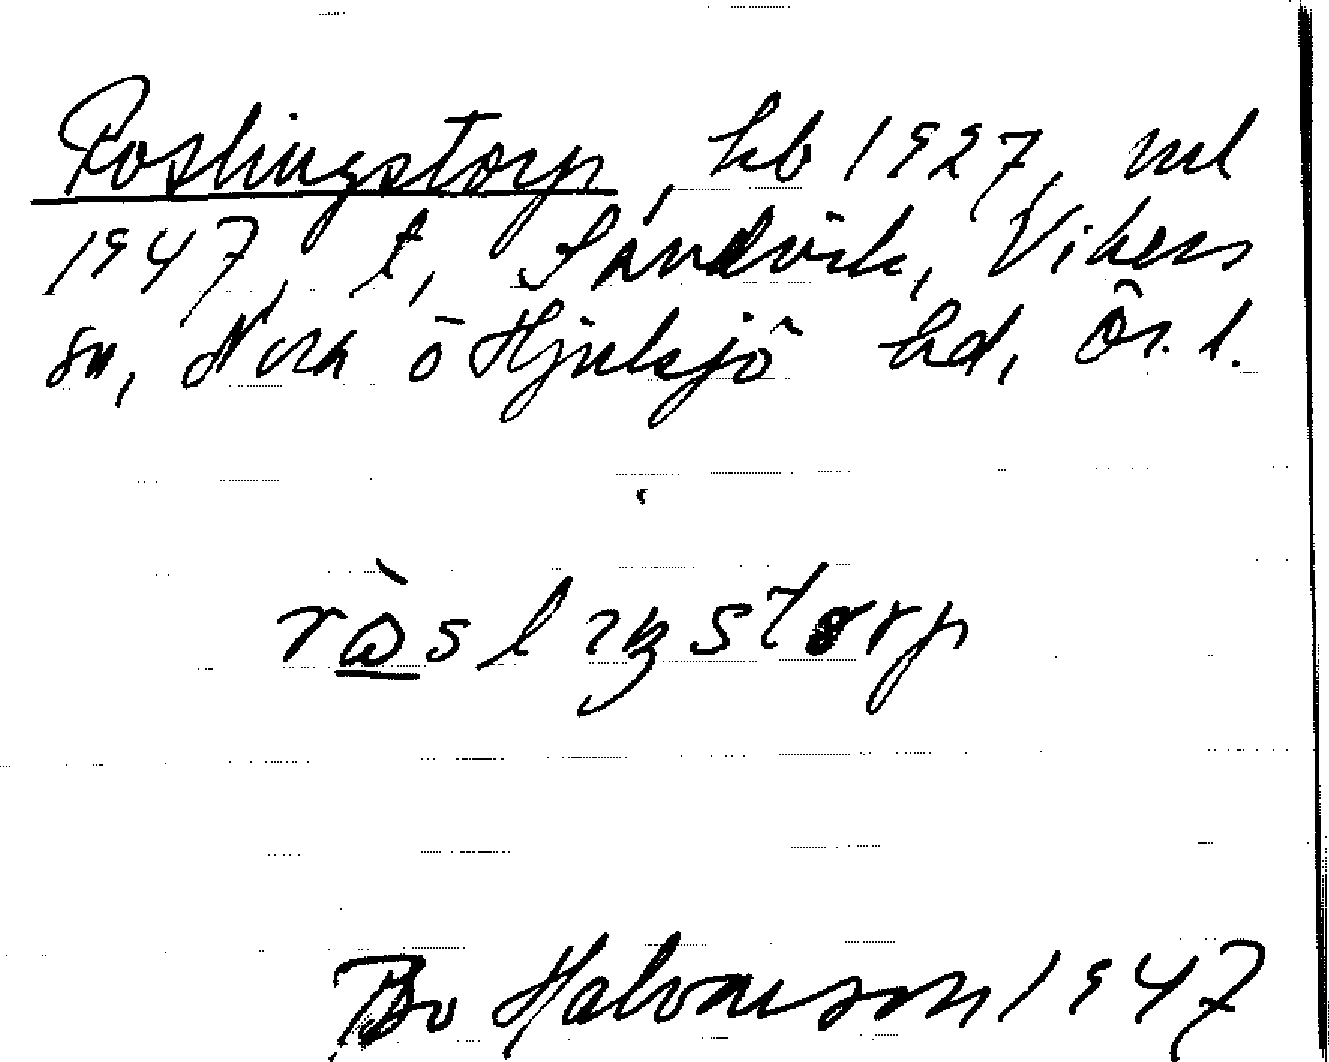 Roslingstorp, hb 1927, ml
1947, t, Sandvik, Vikers
sn, Nora o Hjulsjö hd, Ör. l.
ràslıŋstorp
Bo Halvarson 1947